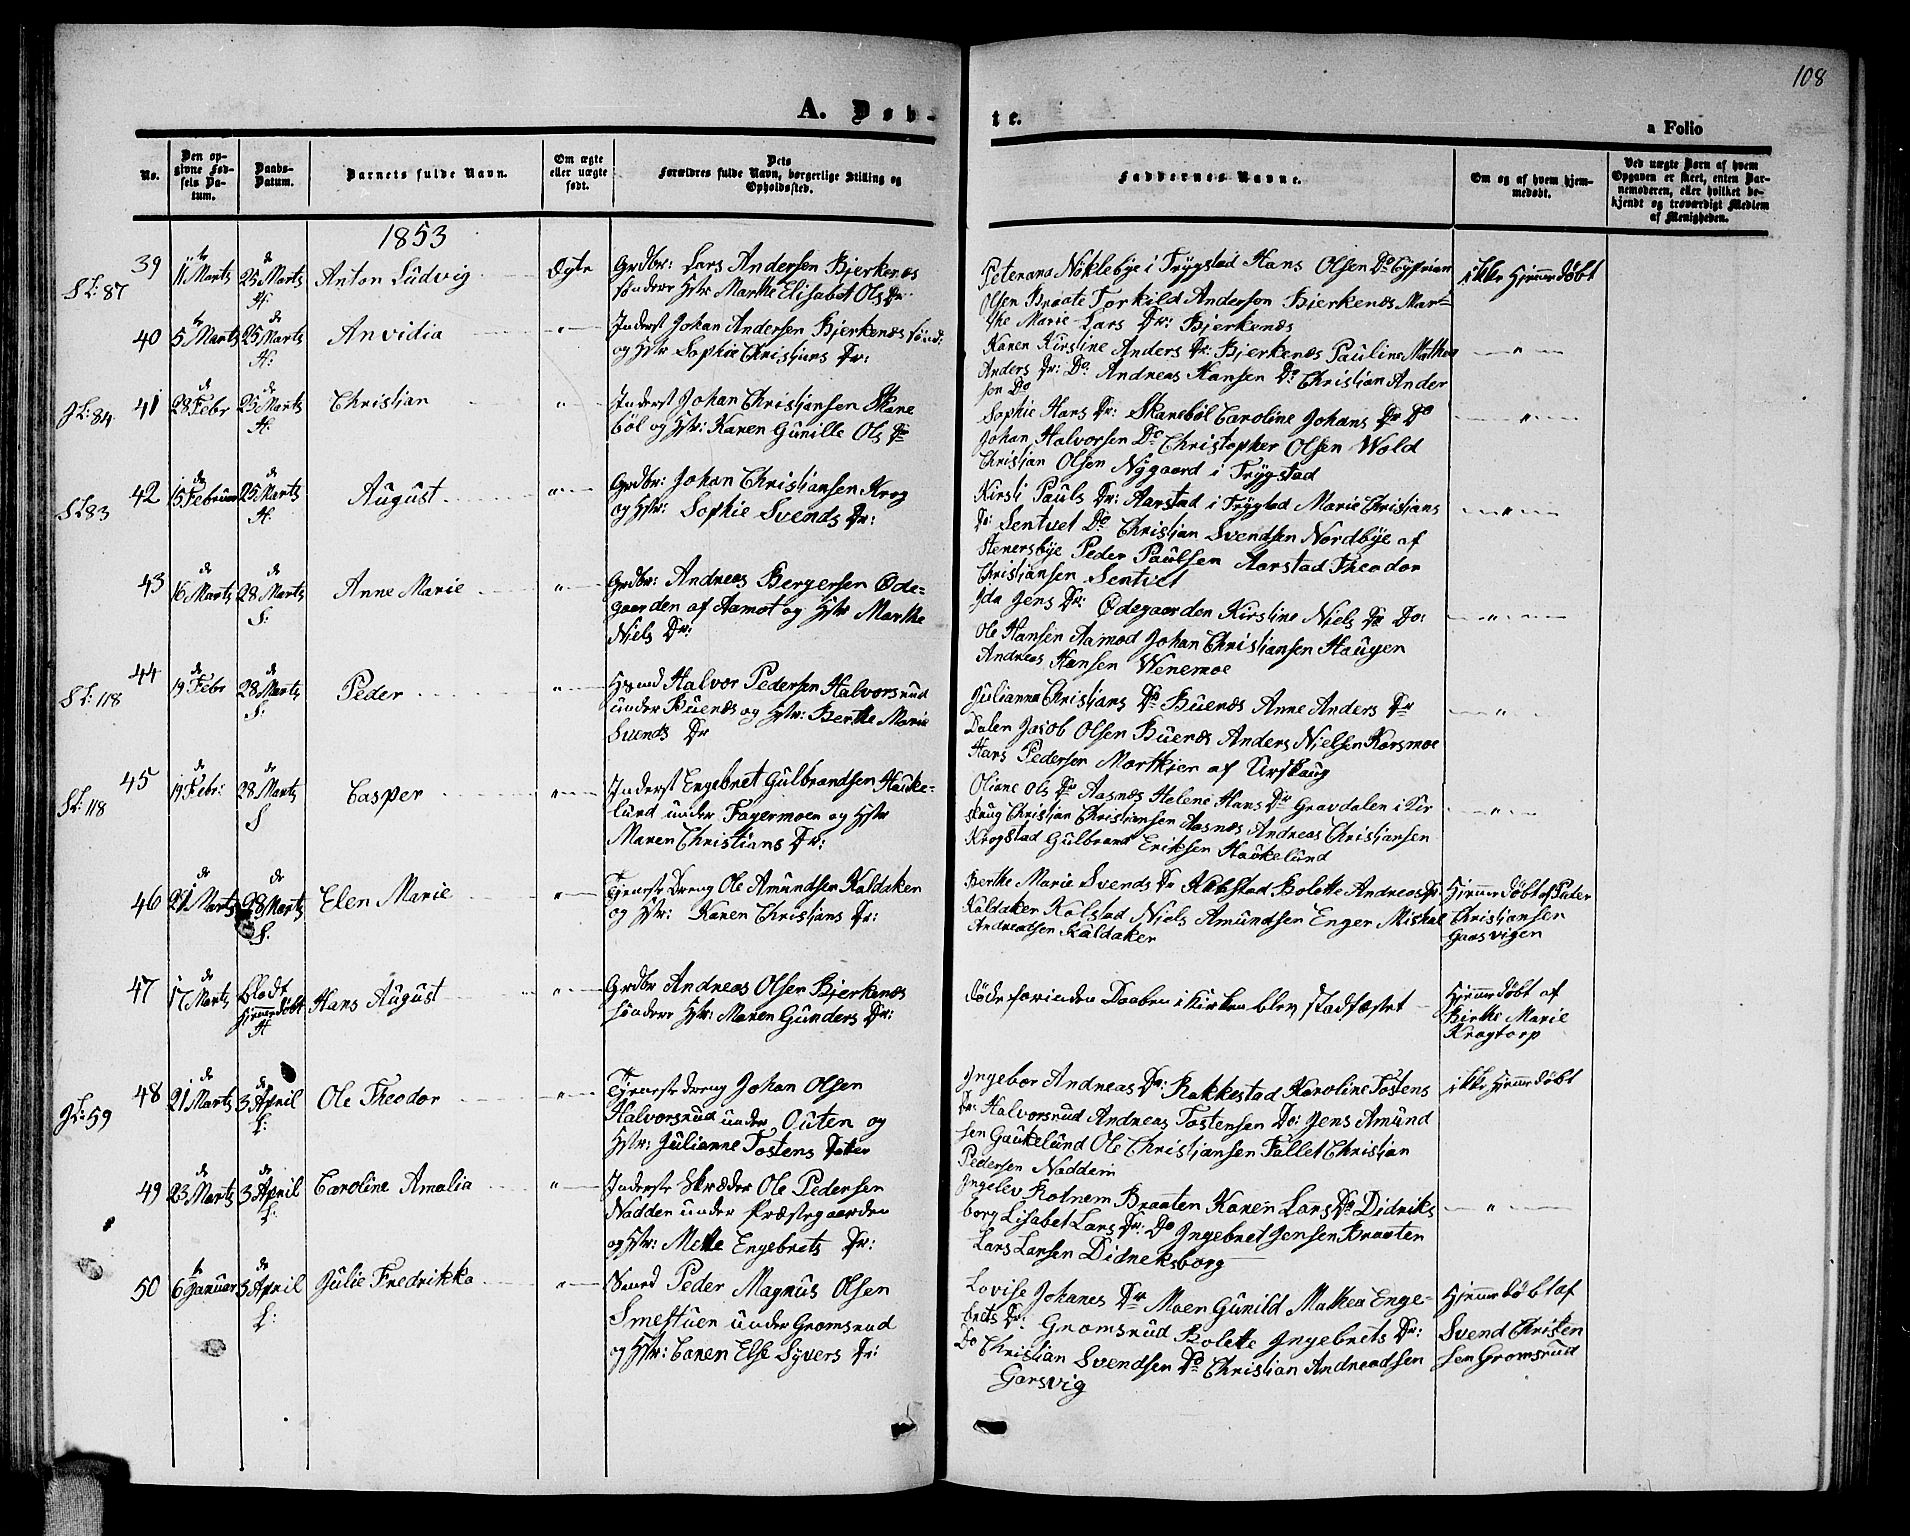 108
A. Døb-
te.
a Folio
No.
Den op-
givne Fød-
sels Da-
tum.
Daabs-
Datum.
Barnets fulde Navn.
Om ægte
eller uægte
født.
Dets
Forældres fulde Navn, borgerlige Stilling og
Opholdssted.
Faddernes Navne.
Om og af hvem hjem-
medøbt.
Ved uægte Børn af hvem
Opgaven er skeet, enten Bar-
nemoderen, eller hvilket be-
kjendt og troværdigt Medlem
af Menigheden.
1853
S L: 87
39
11te Marts
de 25 Marts
H
Anton Ludvig
Ægte
Grdbr: Lars Andersen Bjerkenæs
søndere Hstr Marthe Elisabet Ols Dr.
Peterana Nöklebye i Trygstad Hans Olsen Do
Olsen Braate Torkild Andersen Bjerkenæs Mar-
the Marie Lars Dr: Bjerkenæs
ikke hjemmedøbt
40
5te Marts
de 25 Marts
H:
Anvidia
"
Inderst Johan Andersen Bjerkenæs sönd:
og Hstr Sophie Christians Dr:
Karen Kirstine Anders Dr: Bjerkenæs Pauline Mathea
Anders Dr: Do Andreas Hansen Do Christian Ander
sen Do
"
G L: 84
41
de 28 Febr
de 25 Marts
H.
Christian
"
Inderst Johan Christiansen Skare
böl og Hstr: Karen Gunille Ols Dr
Sophie Hans Dr: Skareböl Caroline Johans Dr Do
Johan Halvorsen Do Christopher Olsen Wold
Christian Olsen Nygaard i Trygstad
"
S L 83
42
de 15 Februar
de 25 Marts
H.
August
"
Grdbr: Johan Christiansen Krog
og Hstr: Sophie Svends Dr:
Kirsti Pauls Dr: Aarstad i Trygstad Marie Christians
Dr: Sentvet Do Christian Svendsen Nordbye af
Stenersbye Peder Paulsen Aarstad Theodor
Christiansen Sentvet
"
43
de 16 Marts
de 28 Marts
S:
Anne Marie
"
Grdbr: Andreas Bergersen Öde-
gaarden af Aamot og Hstr Marthe
Niels Dr:
Ida Jens Dr: Ödegaarden Kirstine Niels Dr Do:
Ole Hansen Aamod Johan Christiansen Haugen
Andreas Hansen Wenemoe
"
S L: 118
44
de 19 Febr
de 28 Marts
S:
Peder
"
Hsmd Halvor Pedersen Halvorsrud
under Buenæs og Hstr: Berthe Marie
Svends Dr
Julianna Christians Dr Buenæs Anne Anders Dr
Dalen Jacob Olsen Buenæs Anders Nielsen Korsmoe
Hans Pedersen Mortkjer af Urskaug
"
S L: 118
45
de 19 Febr:
de 28 Marts
S
Casper
"
Inderst Engebret Gulbrandsen Hauke-
lund under Fagermoen og Hstr
Maren Christians Dr:
Oliane Ols Dr Aasnæs Helene Hans Dr Gravdalen i Ur
skaug Christian Christiansen Aasnæs Andreas Christiansen
Krogstad Gulbrand Eriksen Haukelund
"
46
de 21 Marts
de 28 Marts
S:
Elen Marie
"
Tjeneste Dreng Ole Amundsen Kaldaker
og Hstr: Karen Christians Dr:
Berthe Marie Svends Dr Kolstad Bolette Andreas Dr
Kaldaker Kolstad Niels Amundsen Enger Mickel
Andreasen Kaldaker
Hjemmedøbt af Peder
Christiansen
Garsvigen
47
de 17 Marts
blodt
hjemmedöbt
H
Hans August
"
Grdbr Andreas Olsen Bjerkenæs
söndere Hstr: Maren Gunders Dr:
døde forinden Daaben i Kirken blev stadfæstet
Hjemmedöbt af
Birthe Marie
Krogtorp
G L: 59
48
de 21 Marts
de 3 April
L:
Ole Theodor
"
Tjeneste dreng Johan Olsen
Halvorsrud under Outen og
Hstr: Julianne Tostens Dater
Ingebor Andreas Dr: Rakkestad Karoline Tostens
Dr: Halvorsrud Andreas Tostensen Do: Jens Amund
sen Gaukelund Ole Christiansen Fallet Christian
Pedersen Naddein
ikke hjemmedöbt
49
de 23 Marts
de 3 April
L:
Caroline Amalia
"
Inderste Skræder Ole Pedersen
Nadden under Præstegaarden
og Hstr: Mette Engebrets Dr:
Ingelev Rotnem Braaten Karen Lars Dr Didriks
borg Lisabet Lars Dr: Do Ingebret Jensen Braaten
Lars Larsen Didreksborg
"
50
6te Januar
de 3 April
L:
Julie Fredrikka
"
Smed Peder Magnus Olsen
Smestuen under Gromsrud
og Hstr: Caren Else Syvers Dr:
Lovise Johanes Dr Moen Gunild Mathea Enge-
brets Dr: Gromsrud Bolette Ingebrets Dr:
Do Christian Svendsen Do Christian Andreasen
Garsvig
Hjemmedöbt af
Svend Christen
sen Gromsrud